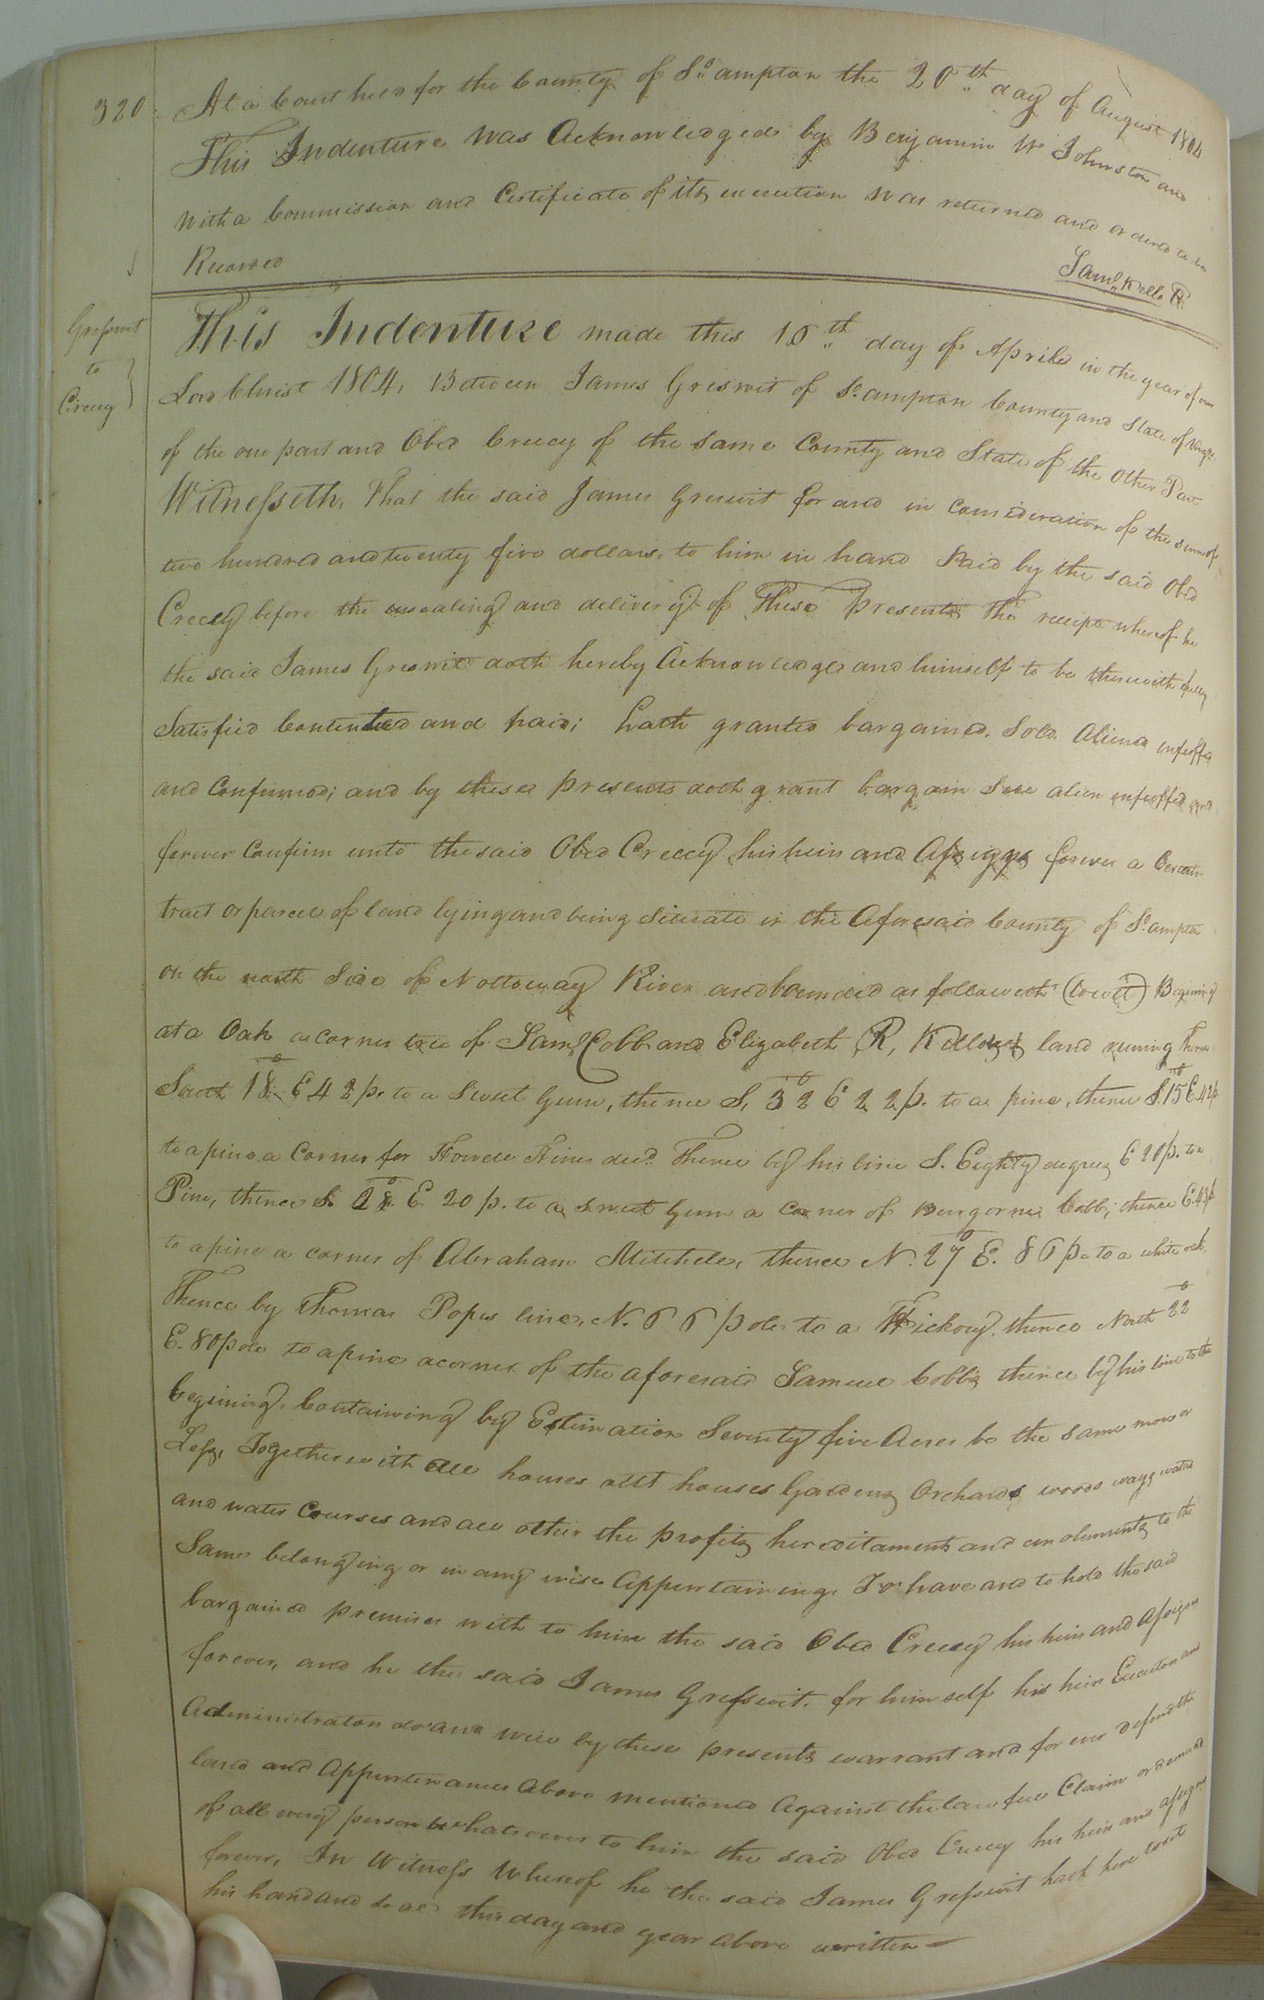 320 At a Court held for the County of So.ampton the 20th day of August 1804
This Indenture was Acknowledged by Benjamin W Johnston and
with a Commission and Certificate of its execution was returned and ordered to be
Recorded
Saml. Kello
Gresswit
to
Creecy
This Indenture made this 10th day of Aprile in the year of our
Lord Christ 1804, Between James Greswit of So.ampton County and State of Virga.
of the one part and Obed Creecy of the same County and State of the Other Part
Witnesseth, That the said James Greswit for and in Consideration of the sum of
two hundred and twenty five dollars, to him in hand Paid by the said Obed
Creecy before the ensealing and delivery of These Presents The receipt whereof he
the said James Greswit doth hereby Acknowledge and himself to be therewith fully
Satisfied Contented and paid; hath granted bargained, Sold Aliened enfeoffed
and Confirmed; and by these presents doth grant bargain Sell alien enfeoffed and
forever Confirm unto the said Obed Creecy his heirs and Assigns forever a Certain
tract or parcel of land lying and being Situate in the Aforesaid County of So.ampton
on the north Side of Nottoway River and bounded as followeth (towit) Begining
at a Oak a corner tree of Saml. Cobb and Elizabeth R, Kelloes land runing Thence
South 18° E 42 p. to a Sweet Gum, thence S, 32° E 22 p. to a pine, thence S. 15° E. 42 p
to a pine a Corner for Howell Hines decd. Thence by his line S. Eighty degrees E 20 p. to a
Pine, thence S. 28° E 20 p. to a sweet Gum a Corner of Burgorne Cobb; thence E. 43 p
to a pine a corner of Abraham Mitchele, thence N. 27° E. 86 p. to a white oak,
Thence by Thomas Popes line, N. 66 pole to a Hickory, thence North 22°
E. 80 pole to a pine a corner of the aforesaid Samuel Cobbs thence by his line to the
begining, Containing by Estimation Seventy five Acres be the same more or
Less, Together with all houses outt houses Gardens Orchards woods ways waters
and water Courses and all other the profits hereditaments and emoluments to the
Same belonging or in any wise Appertaining, To have and to hold the said
bargained premises with to him the said Obed Creecy his heirs and Assigns
forever, and he the said James Gresswit. for him self his heirs Executors and
Administrators do and will by these presents warrant and for ever defend the
land and Appurtenances Above mentioned Against the lawfull Claim or demand
of all every person whatsoever to him the said Obed Creecy his heirs and assigns
forever, In Witness Whereof he the said James Gresswit hath here to set
his hand and seal this day and year above written